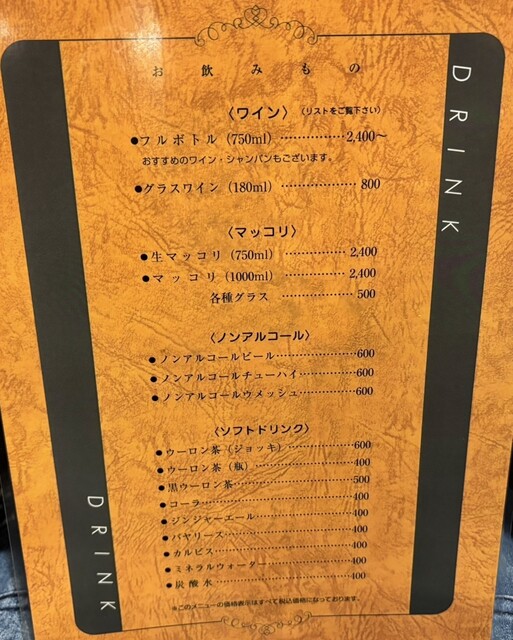 お飲みもの
DRINK
〈ワイン〉(リストをご覧下さい)
●フルボトル(750ml)………………2,400〜
おすすめのワイン・シャンパンもございます。
●グラスワイン(180ml)………………800
〈マッコリ〉
●生マッコリ(750ml)………………2,400
●マッコリ(1000ml)………………2,400
各種グラス ………………500
〈ノンアルコール〉
●ノンアルコールビール………………600
●ノンアルコールチューハイ………………600
●ノンアルコールウメッシュ………………600
〈ソフトドリンク〉
●ウーロン茶(ジョッキ)………………600
●ウーロン茶(瓶)………………400
●黒ウーロン茶………………500
●コーラ………………400
●ジンジャーエール………………400
●バヤリース………………400
●カルピス………………400
●ミネラルウォーター………………400
●炭酸水………………400
※このメニューの価格表示はすべて税込価格になっております。
DRINK